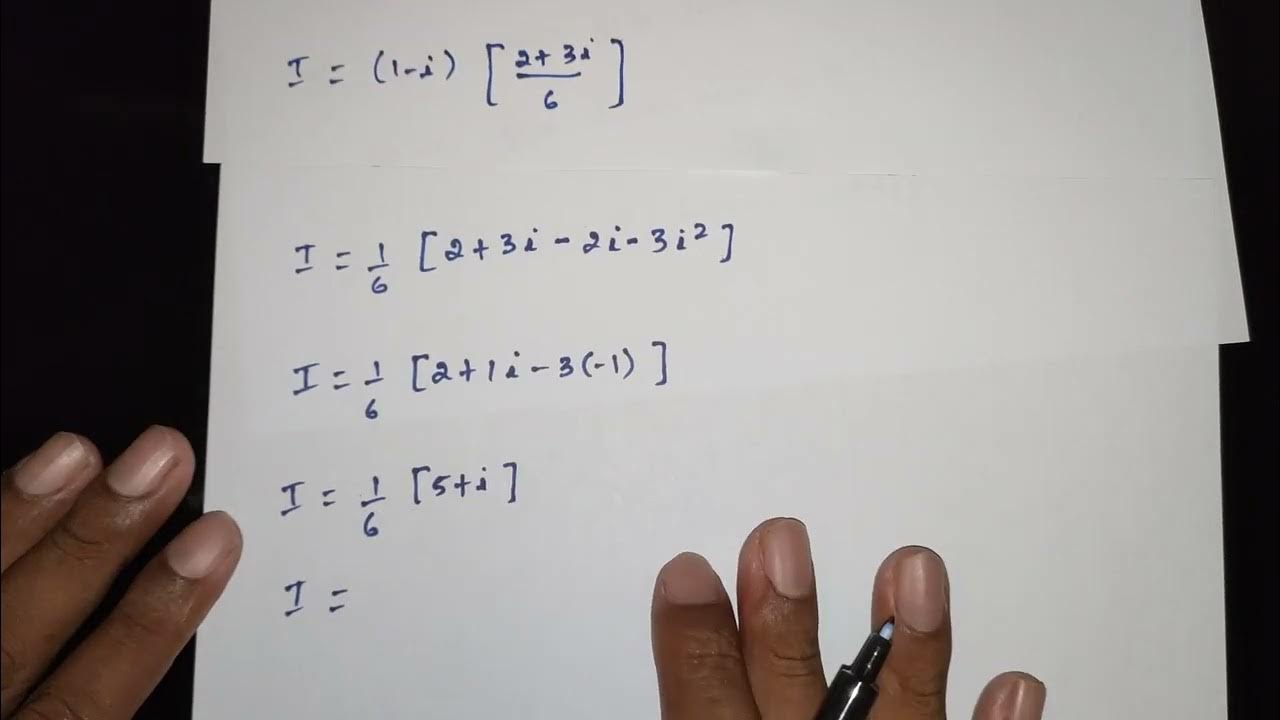 I = (1-i) [2+3i/6]
I = 1/6 [2+3i-2i-3i²]
I = 1/6 [2+1i-3(-1)]
I = 1/6 [5+i]
I =